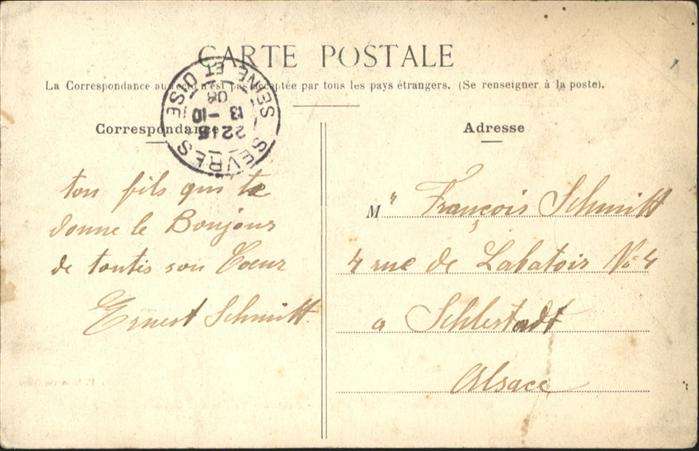 CARTE POSTALE
La Correspondance au n'est pas acceptée par tous les pays étrangers. (Se renseigner à la poste).
Correspondance
SEVRES SEINE ET OISE
22 15
13 - 10
08
ton fils qui te
donne le Bonjour
de toutis son Coeur
Ernest Schmitt
Adresse
M" François Schmitt
4 rue de Labatoir No 4
a Schlestadt
Alsace